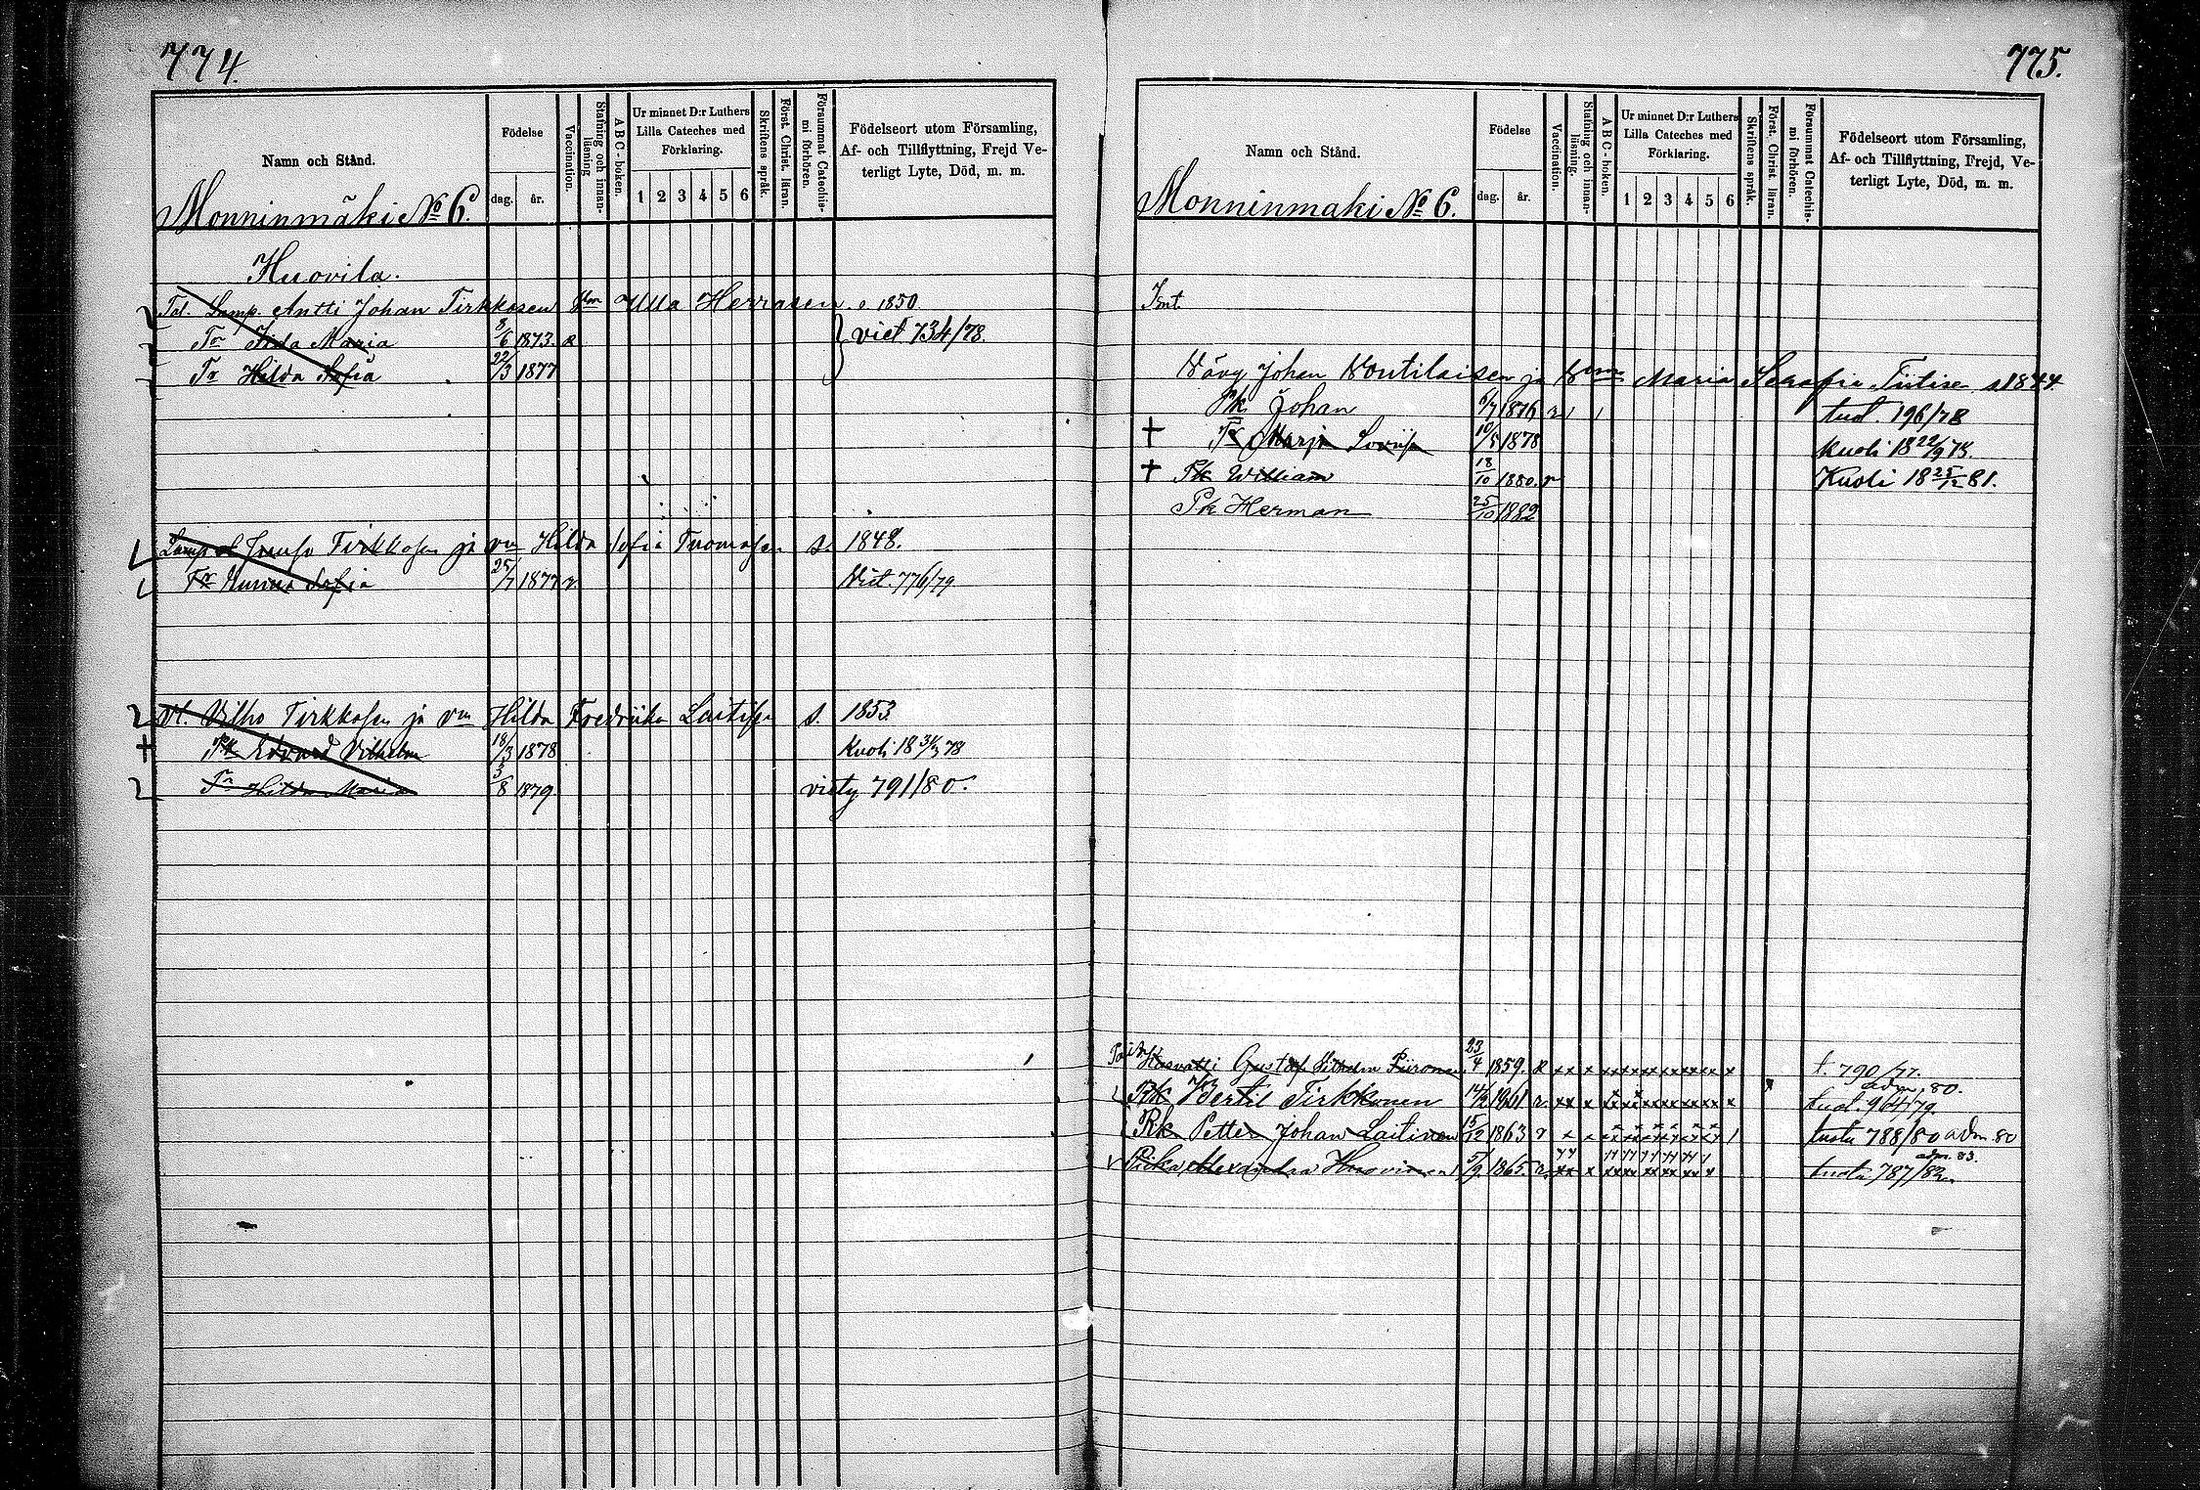 774.
Namn och Stånd.
Födelse
dag.
år.
Vaccination.
Stafning och innan-
läsning
A B C-boken.
Ur minnet D:r Luthers
Lilla Cateches med
Förklaring.
1 2 3 4 5 6
Skriftens språk.
Först. Christ. läran.
Försummat Catechis-
mi förhören.
Födelseort utom Församling,
Af- och Tillflyttning, Frejd Ve-
terligt Lyte, Död, m. m.
Monninmäki No 6.
Huovila.
Tal. Lamp. Antti Johan Tirkkosen Ulla Herrasen s 1850.
Tr Iida Maria 8/6 1873. R viet 734/78.
Tr Hilda Sofia 22/3 1877
Lamp. Juuso Tirkkosen ja vm Hilda Sofia Tuomasen s. 1848.
Tr Sofia 25/7 1877 r. Viet. 776/79
Vl. Vilho Tirkkosen ja vm Hilda Fredriika Laitisen s. 1853
Pk Edvard Vilhelm 18/3 1878 Kuoli 18 31/3 78
Tr Hilda Maria 3/8 1879 viety 791/80.
775.
Namn och Stånd.
Födelse
dag.
år.
Vaccination.
Stafning och innan-
läsning.
A B C-boken.
Ur minnet D:r Luthers
Lilla Cateches med
Förklaring.
1 2 3 4 5 6
Skriftens språk.
Först. Christ. läran.
Försummat Catechis-
mi förhören.
Födelseort utom Församling,
Af- och Tillflyttning, Frejd, Ve-
terligt Lyte, Död, m. m.
Monninmäki No 6.
Int.
Vävy Johan Voutilaisen ja Vmn Maria Serafia Tiitisen s 1844
Pk Johan 6/7 1876 tuot. 196/78
Tr Marja Loviisa 10/5 1878 kuoli 18 22/9 78.
Pk William 18/10 1880. r Kuoli 18 25/12 81.
Pk Herman 25/10 1882
Kasvatti Gustaf Vilhelm Piironen 23/4 1859. R xx x xxxxxxxxxxxx x t. 790/77.
adm. 80.
Rk Bertil Tirkkonen 14/2 1861 r. xx x xxxxxxxxxxxx x tuot. 964/79.
Rk Petter Johan Laitinen 15/12 1863 r x x xxxxxxxxxxxx 1 tuotu 788/80 adm. 80
adm. 83.
Piika Alexandra Huovinen 5/9. 1865. r. xx x xxxxxxxxxxx tuotu 787/82.